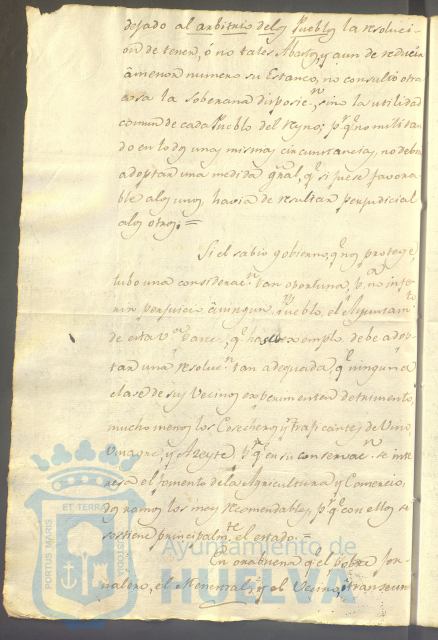 dejado al arbitrio delos Pueblos la resoluci-
ón de tener, ó no tales Abastos, y aun de reducir
á menor numero su Estanco, no consultó otra
cosa la Soberana disposicn, sino la utilidad
comun de cada Pueblo del Reyno; pr qe no militan
do en todos unas mismas circunstancias, no debia
adoptar una medida gral, qe si fuese favora
ble alos unos, havia de resultar perjudicial
alos otros. =
Si el sabio gobierno, qe nos protege
tubo una consideracn tan oportuna, pa no infe
rir perjuicio á ningun Pueblo, el Ayuntamto
de esta Va parece, qe há su exemplo debe adop
tar una resolucn tan adequada, qe ninguna
clase de sus Vecinos experimenten detrimento,
mucho menos los Cosecheros y traficantes de Vino
Vinagre, y Azeyte pr qe en su conservacn se inte
resa el fomento dela Agricultura y Comercio,
dos ramos los mas recomendables, pr qe con ellos se
sostiene principalmte el estado. =
En orabuena qe el pobre jor-
nalero, el Menestral, y el Vecino, transeun
PORTUS MARIS ET TERRAE CUSTODIA
Ayuntamiento de
HUELVA